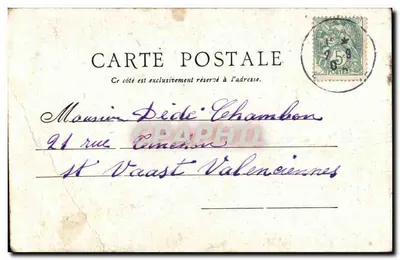 CARTE POSTALE
Ce côté est exclusivement réservé à l'adresse.
Monsieur Dédé Chambon
21 rue
St Vaast Valenciennes